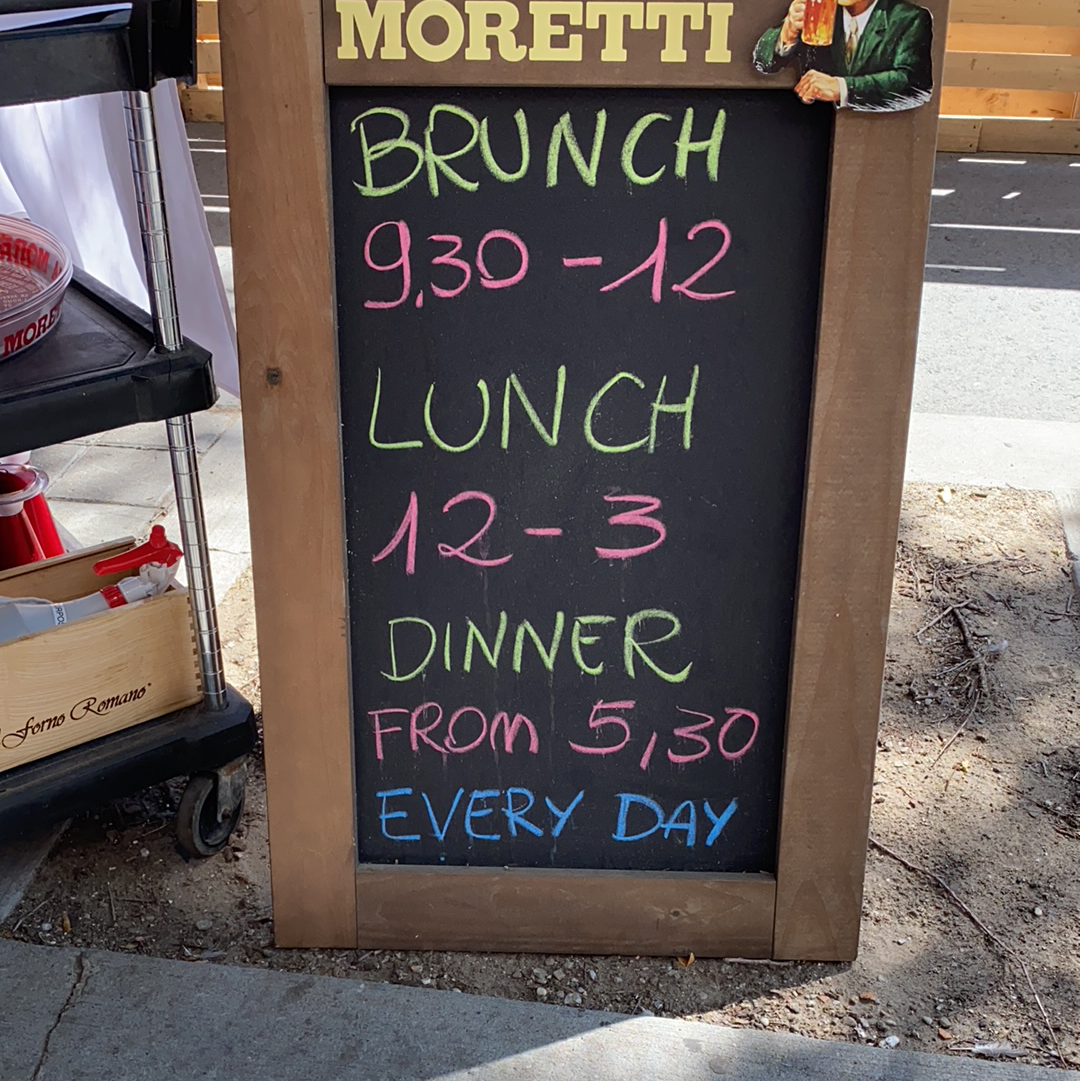 MORETTI
BRUNCH
9.30 - 12
LUNCH
12 - 3
DINNER
FROM 5,30
EVERY DAY
Forno Romano